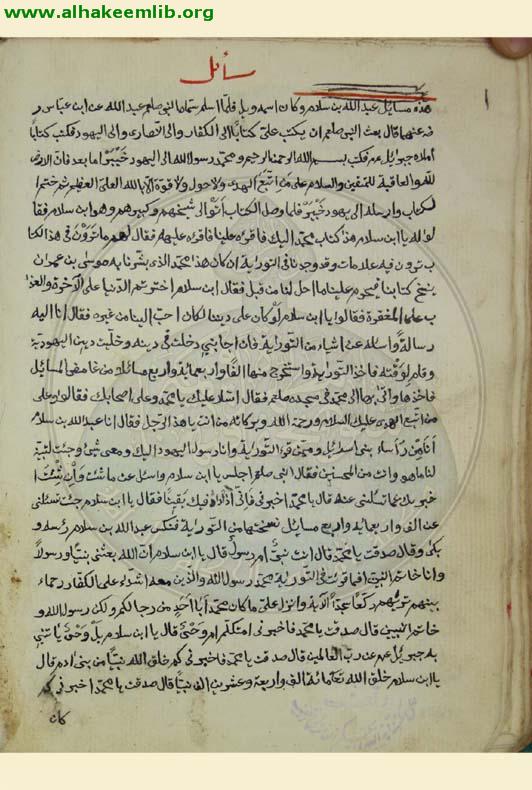 www.alhakeemlib.org
مسائل
١
هذه مسايل عبد الله بن سلام وكان اسمه ويل فلمّا اسلم سمّاه النبي صلعم عبد الله عن ابن عباس ر
ضه عنهما قال بعث النبي صلعم ان يكتب على كتابًا الى الكفار والى النصارى والى اليهود فكتب كتابًا
املاه جبرائيل عم فكتب بسم الله الرحمن الرحيم محمد رسول الله الى اليهود خيبر اما بعد فان الارض
لله والعاقبة للمتقين والسلام على من اتبع الهدى ولا حول ولا قوة الا بالله العلي العظيم ثم ختم ا
لكتاب وارسله الى يهود خيبر فلما وصل الكتاب أتوا الى شيخهم وكبيرهم وهو ابن سلام فقا
لوا له يا ابن سلام هذا كتاب محمد اليك فاقرءه علينا فاقرءه عليهم فقال لهم ما ترون في هذا الكتا
ب ترون فيه علامات وقد وجدنا في التوراية ان كان هذا محمد الذي بشّرنا به موسى بن عمران
ينسخ كتابنا فيحرم علينا ما احل لنا من قبل فقال ابن سلام اخترتم الدنيا على الآخرة والعذا
ب على المغفرة فقالوا يا ابن سلام لو كان على ديننا لكان احبّ الينا من غيره فقال انا اليه
رسالة واساله عن اشياء من التوراية فان اجابني دخلت في دينه وخلّيت دين اليهودية
وقام لوقته فاخذ التوراية واستخرج منها الفا واربعماية واربع مسائلا من غامض المسائل
فاخذها واتى بها الى محمد في مسجده صلعم فقال السلام عليك يا محمد وعلى اصحابك فقالوا وعلى
من اتبع الهدى عليك السلام ورحمة الله وبركاته من انت يا هذا الرجل فقال انا عبد الله بن سلام
انا من رأساء بني اسرائيل وممن قرء التوراية وانا رسول اليهود اليك ومعي شيء وجئت لتبيّنه
لنا ما هو وانت من المحسنين فقال النبي صلعم اجلس يا ابن سلام واسئل عن ما شئت وان شئت ا
خبرك بما تسئلني عنه قال يا محمد اخبرني فاني ازداد فيك يقينا فقال يا ابن سلام جئت تسئلني
عن الف واربعماية واربع مسايل نسختها من التوراية فنكس عبد الله بن سلام رئسه و
بكى وقال صدقت يا محمد قال انت نبيّ ام رسول قال يا ابن سلام ان الله بعثني نبيّا ورسولاً
وانا خاتم النبيين اما قرئت في التوراية محمد رسول الله والذين معه اشداء على الكفار رحماء
بينهم تريهم ركّعا سجّدا الآية وانزل علي ما كان محمد أبا احد من رجالكم ولكن رسول الله و
خاتم النبيين قال صدقت يا محمد فاخبرني امتكلم ام وحيّ قال يا ابن سلام بل وحيّ يأتيني
به جبرائيل عم عن ربّ العالمين قال صدقت يا محمد فاخبرني كم خلق الله نبيّا من بني ادم قال
يا ابن سلام خلق الله تعا مائة الف واربعة وعشرين الف نبيّا قال صدقت يا محمد اخبرني كم
كان